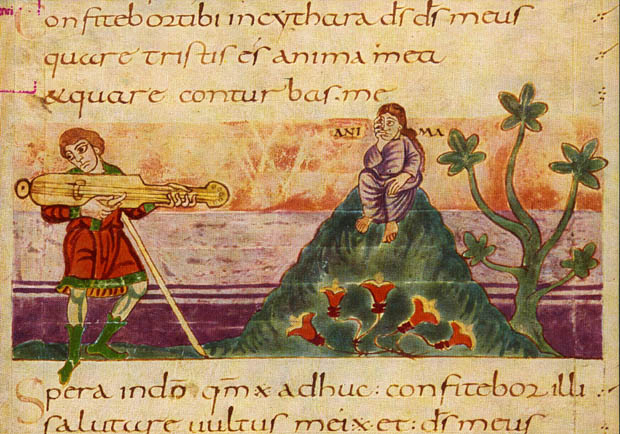 Confitebor tibi in cythara d̄s d̄s meus
quare tristis es anima mea
& quare conturbas me
ANI MA
Spera in dō qm̄ x adhuc: confitebor illi
salutare uultus mei x et: d̄s meus